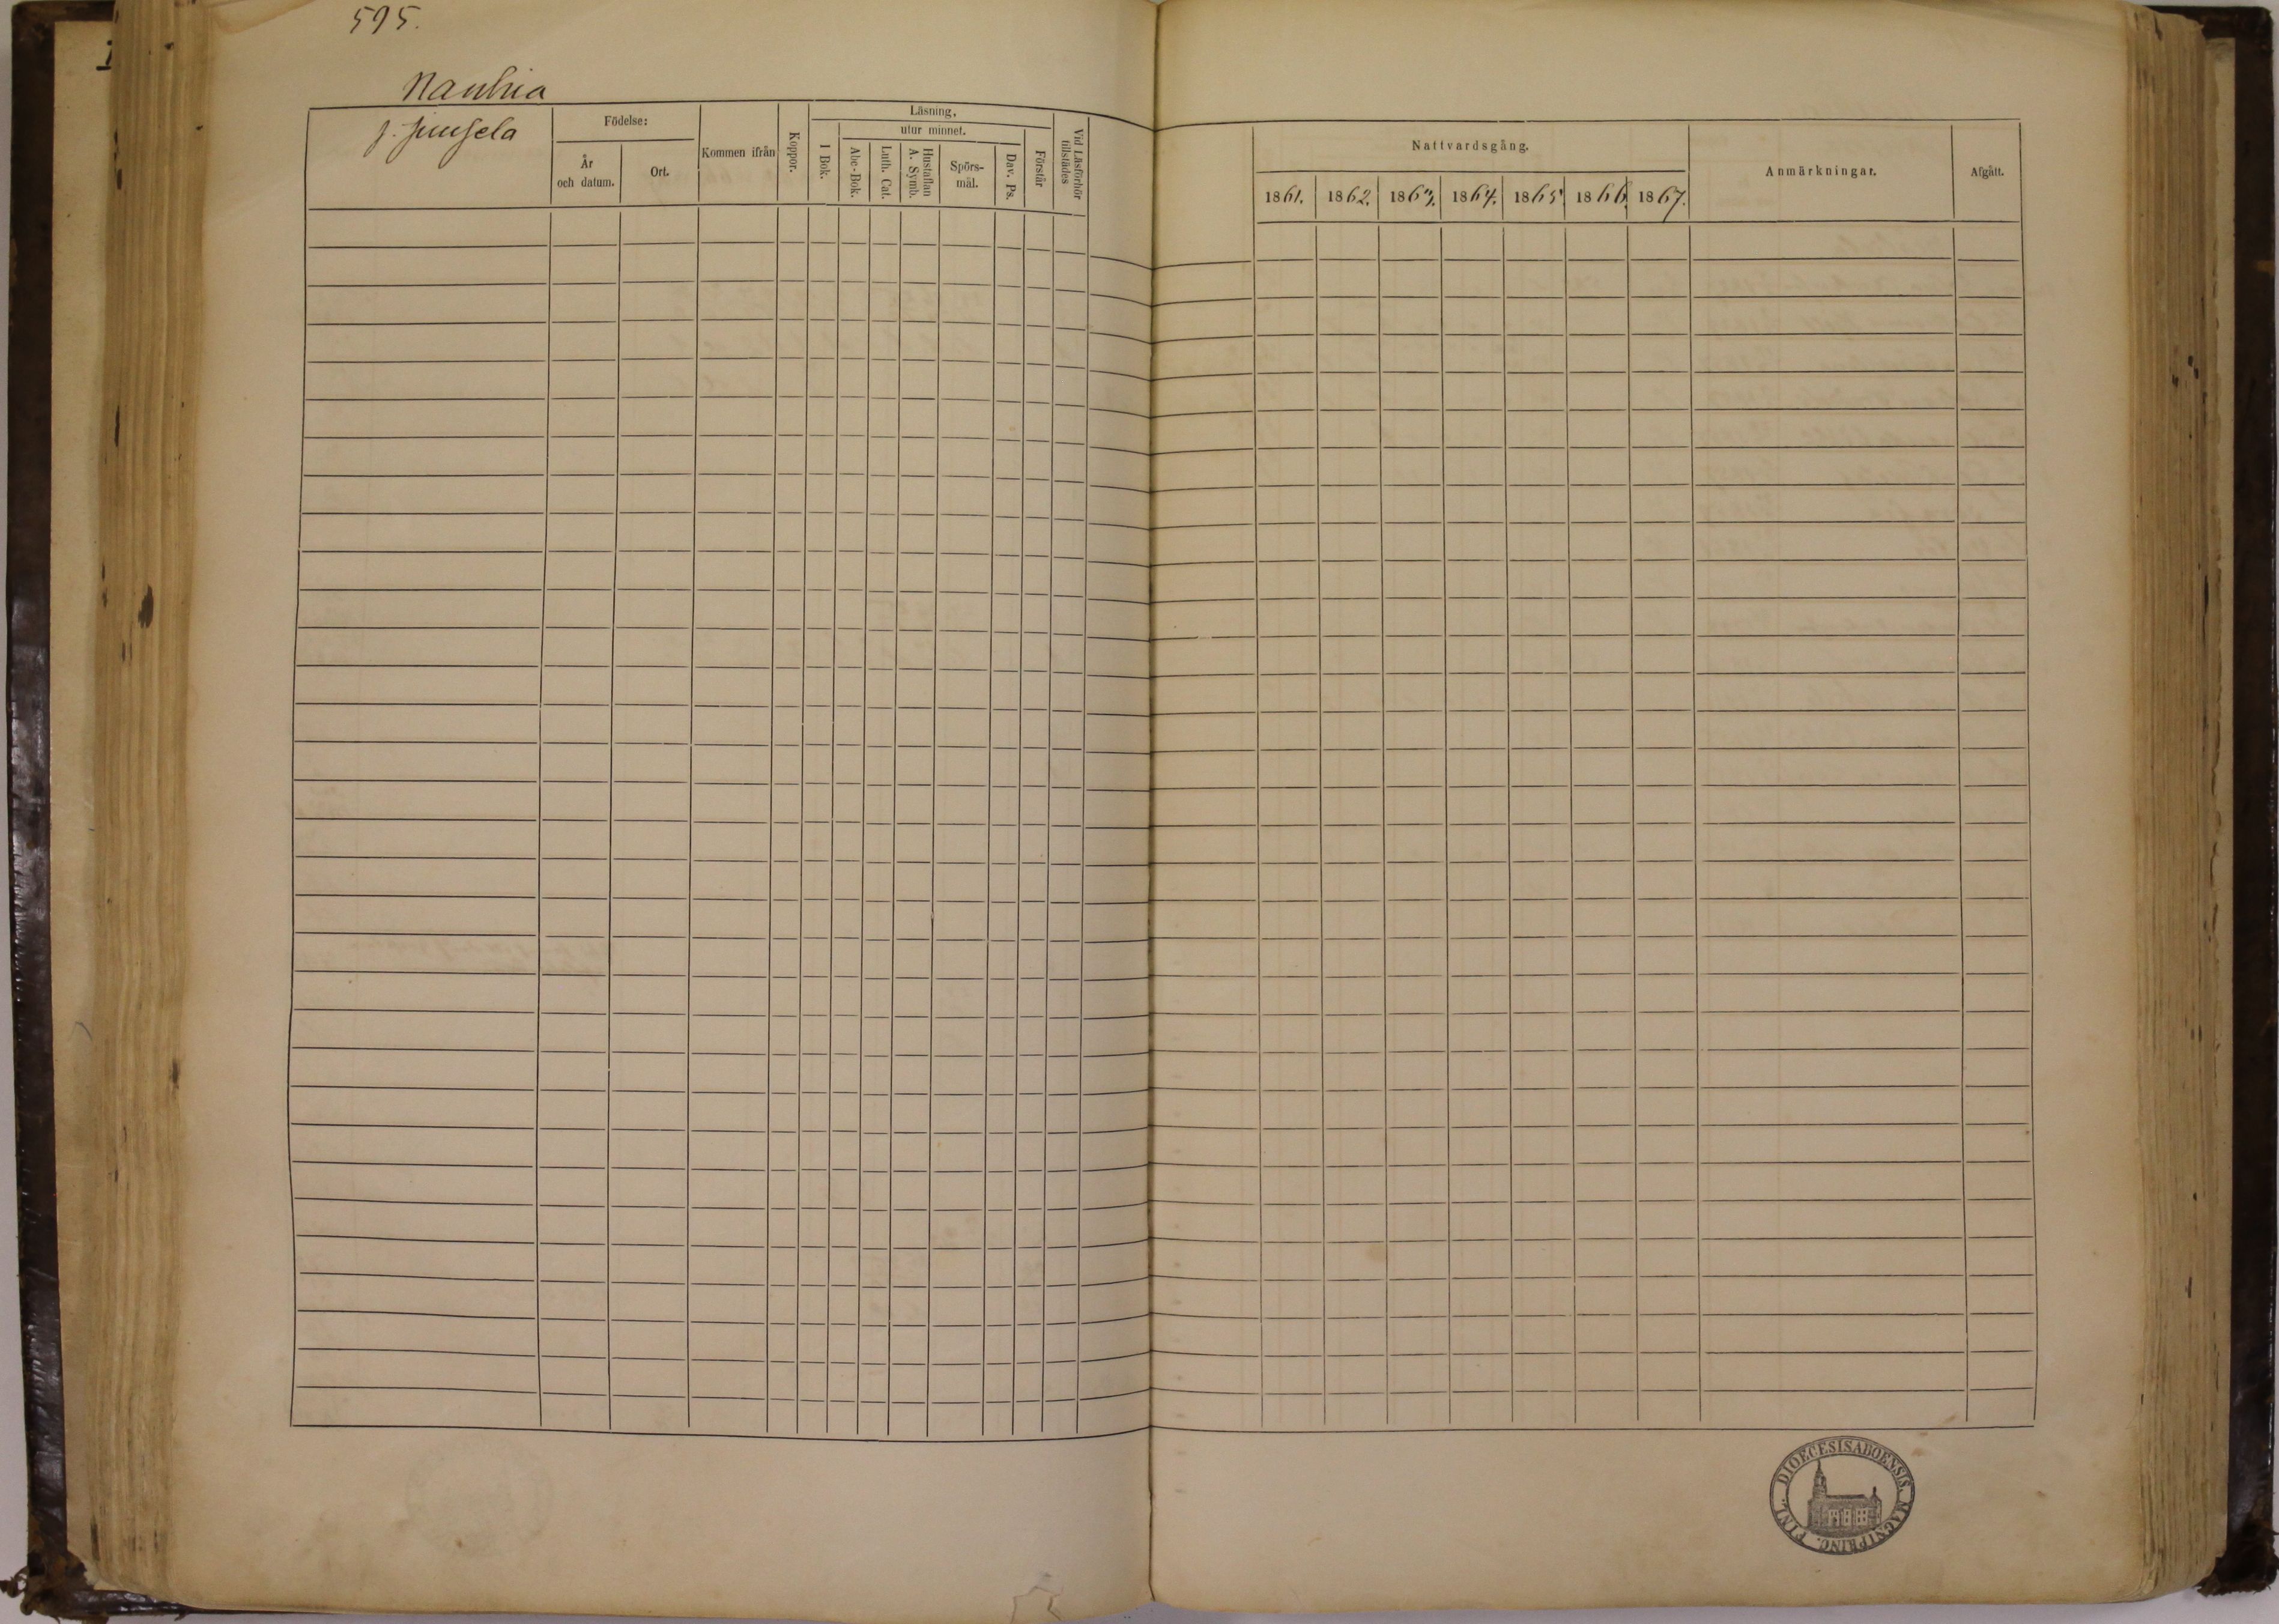 595.
Nauhia
j. Juusela
Födelse:
År och datum.
Ort.
Kommen ifrån
Koppor.
Läsning,
I Bok.
utur minnet.
Abc-Bok.
Luth. Cat.
Hustaflan A. Symb.
Spörs-mål.
Dav. Ps.
Förstår
Vid Läsförhör tillstädes
Nattvardsgång.
1861. 1862. 1863. 1864. 1865 1866. 1867.
Anmärkningar.
Afgått.
DIOECESIS ABOENSIS. MAGNI PRINC. FINL.